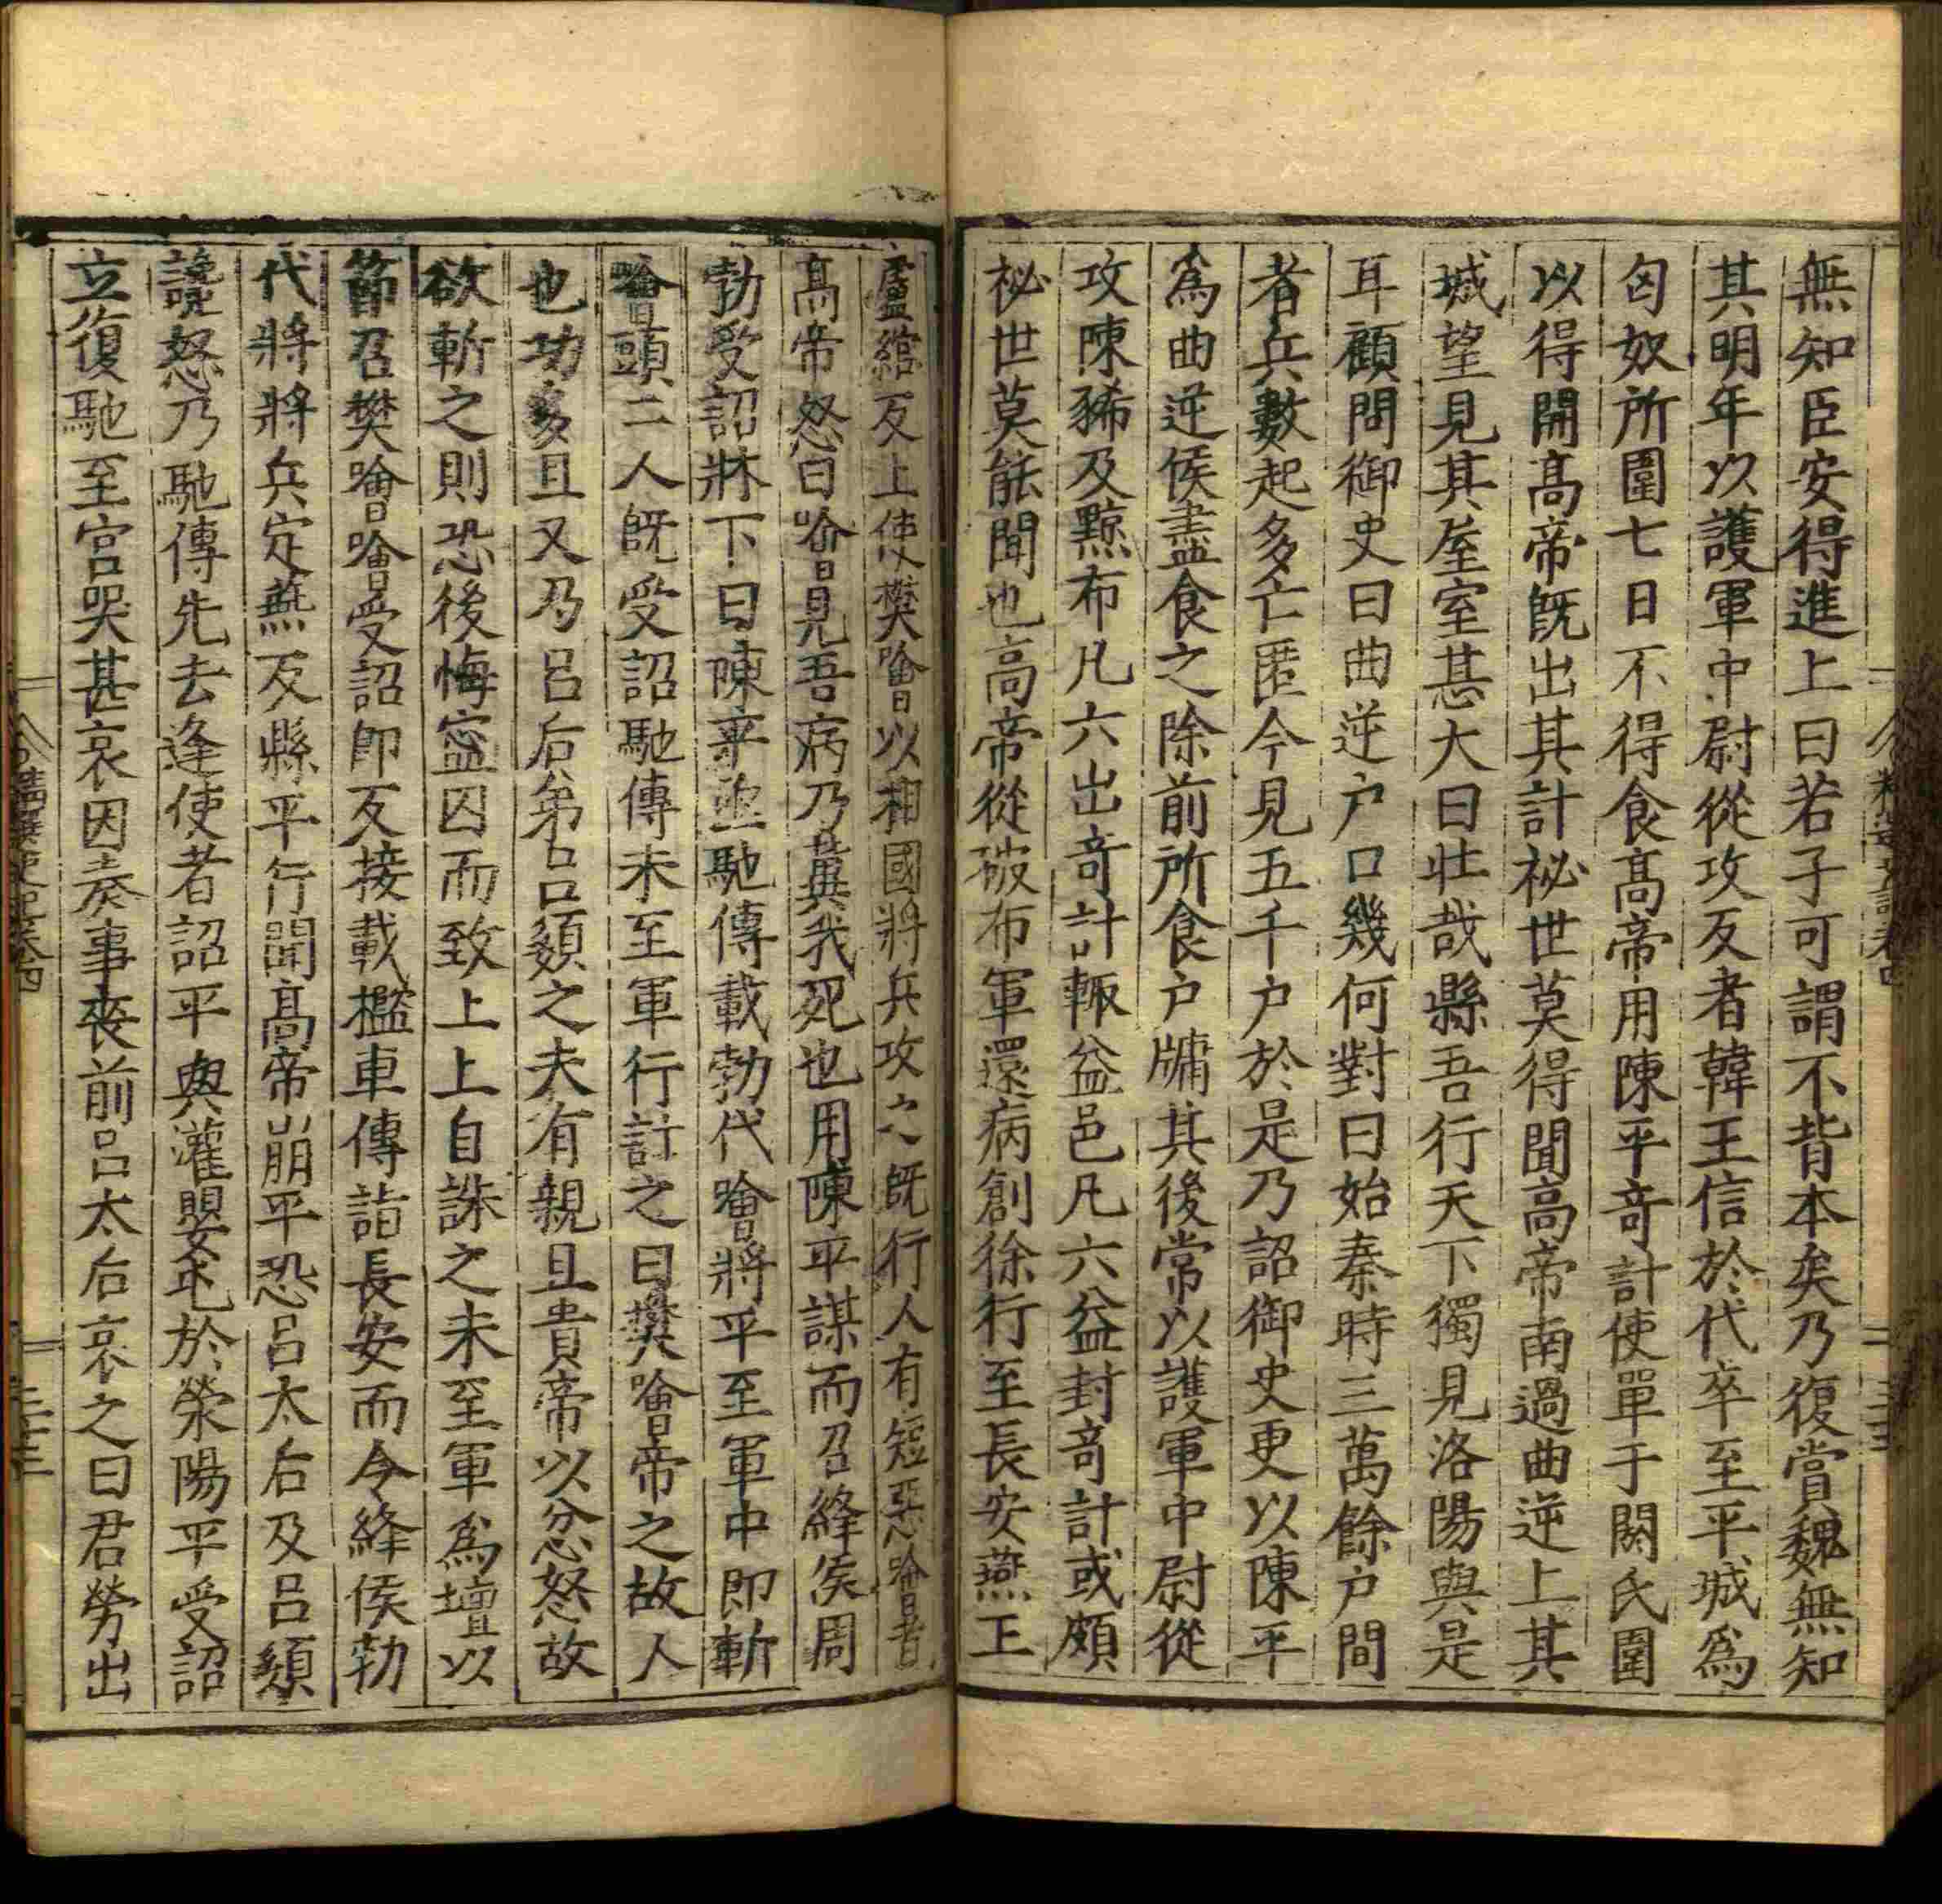 無知臣安得進上曰若子可謂不背本矣乃復賞魏無知
其明年以護軍中尉從攻反者韓王信於代卒至平城爲
匈奴所圍七日不得食高帝用陳平奇計使單于閼氏圍
以得開高帝旣出其計祕世莫得聞高帝南過曲逆上其
城望見其屋室甚大曰壯哉縣吾行天下獨見洛陽與是
耳顧問御史曰曲逆戶口幾何對曰始秦時三萬餘戶間
者兵數起多亡匿今見五千戶於是乃詔御史更以陳平
爲曲逆侯盡食之除前所食戶牖其後常以護軍中尉從
攻陳豨及黥布凡六出奇計輒益邑凡六益封奇計或頗
祕世莫能聞也高帝從破布軍還病創徐行至長安燕王
盧綰反上使樊噲以相國將兵攻之旣行人有短惡噲者
高帝怒曰噲見吾病乃冀我死也用陳平謀而召絳侯周
勃受詔牀下曰陳平亟馳傳載勃代噲將平至軍中即斬
噲頭二人旣受詔馳傳未至軍行計之曰樊噲帝之故人
也功多且又乃呂后弟呂嬃之夫有親且貴帝以忿怒故
欲斬之則恐後悔寧囚而致上上自誅之未至軍爲壇以
節召樊噲噲受詔即反接載檻車傳詣長安而令絳侯勃
代將將兵定燕反縣平行聞高帝崩平恐呂太后及呂嬃
讒怒乃馳傳先去逢使者詔平與灌嬰屯於滎陽平受詔
立復馳至宮哭甚哀因奏事喪前呂太后哀之曰君勞出